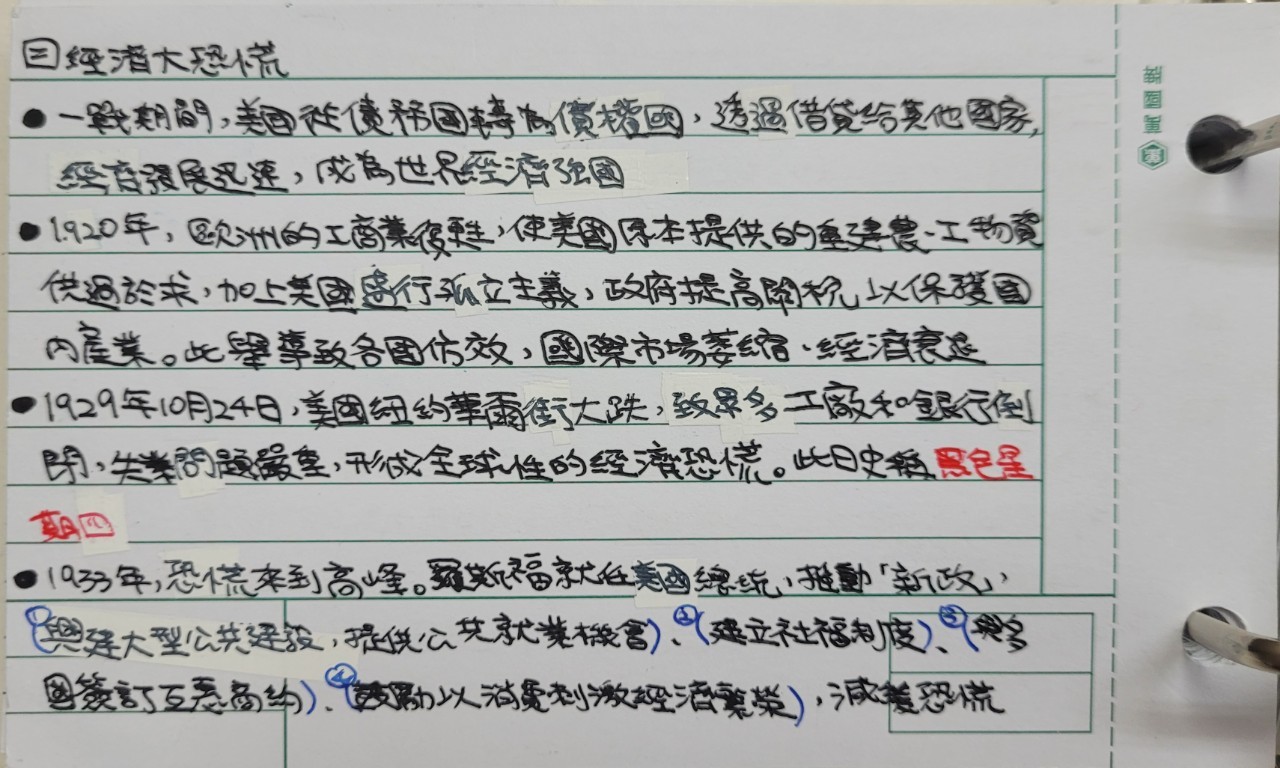 三 經濟大恐慌
● 一戰期間，美國從債務國轉為債權國，透過借貸給其他國家，
經濟發展迅速，成為世界經濟強國
● 1920年，歐洲的工商業復甦，使美國原本提供的重建農、工物資
供過於求，加上美國盛行孤立主義，政府提高關稅以保護國
內產業。此舉導致各國仿效，國際市場萎縮、經濟衰退
● 1929年10月24日，美國紐約華爾街大跌，致眾多工廠和銀行倒
閉，失業問題嚴重，形成全球性的經濟恐慌。此日史稱黑色星
期四
● 1933年，恐慌來到高峰。羅斯福就任美國總統，推動「新政」，
(興建大型公共建設，提供公共就業機會)、②(建立社福制度)、③(與多
國簽訂互惠商約)、④(鼓勵以消費刺激經濟繁榮)，減緩恐慌